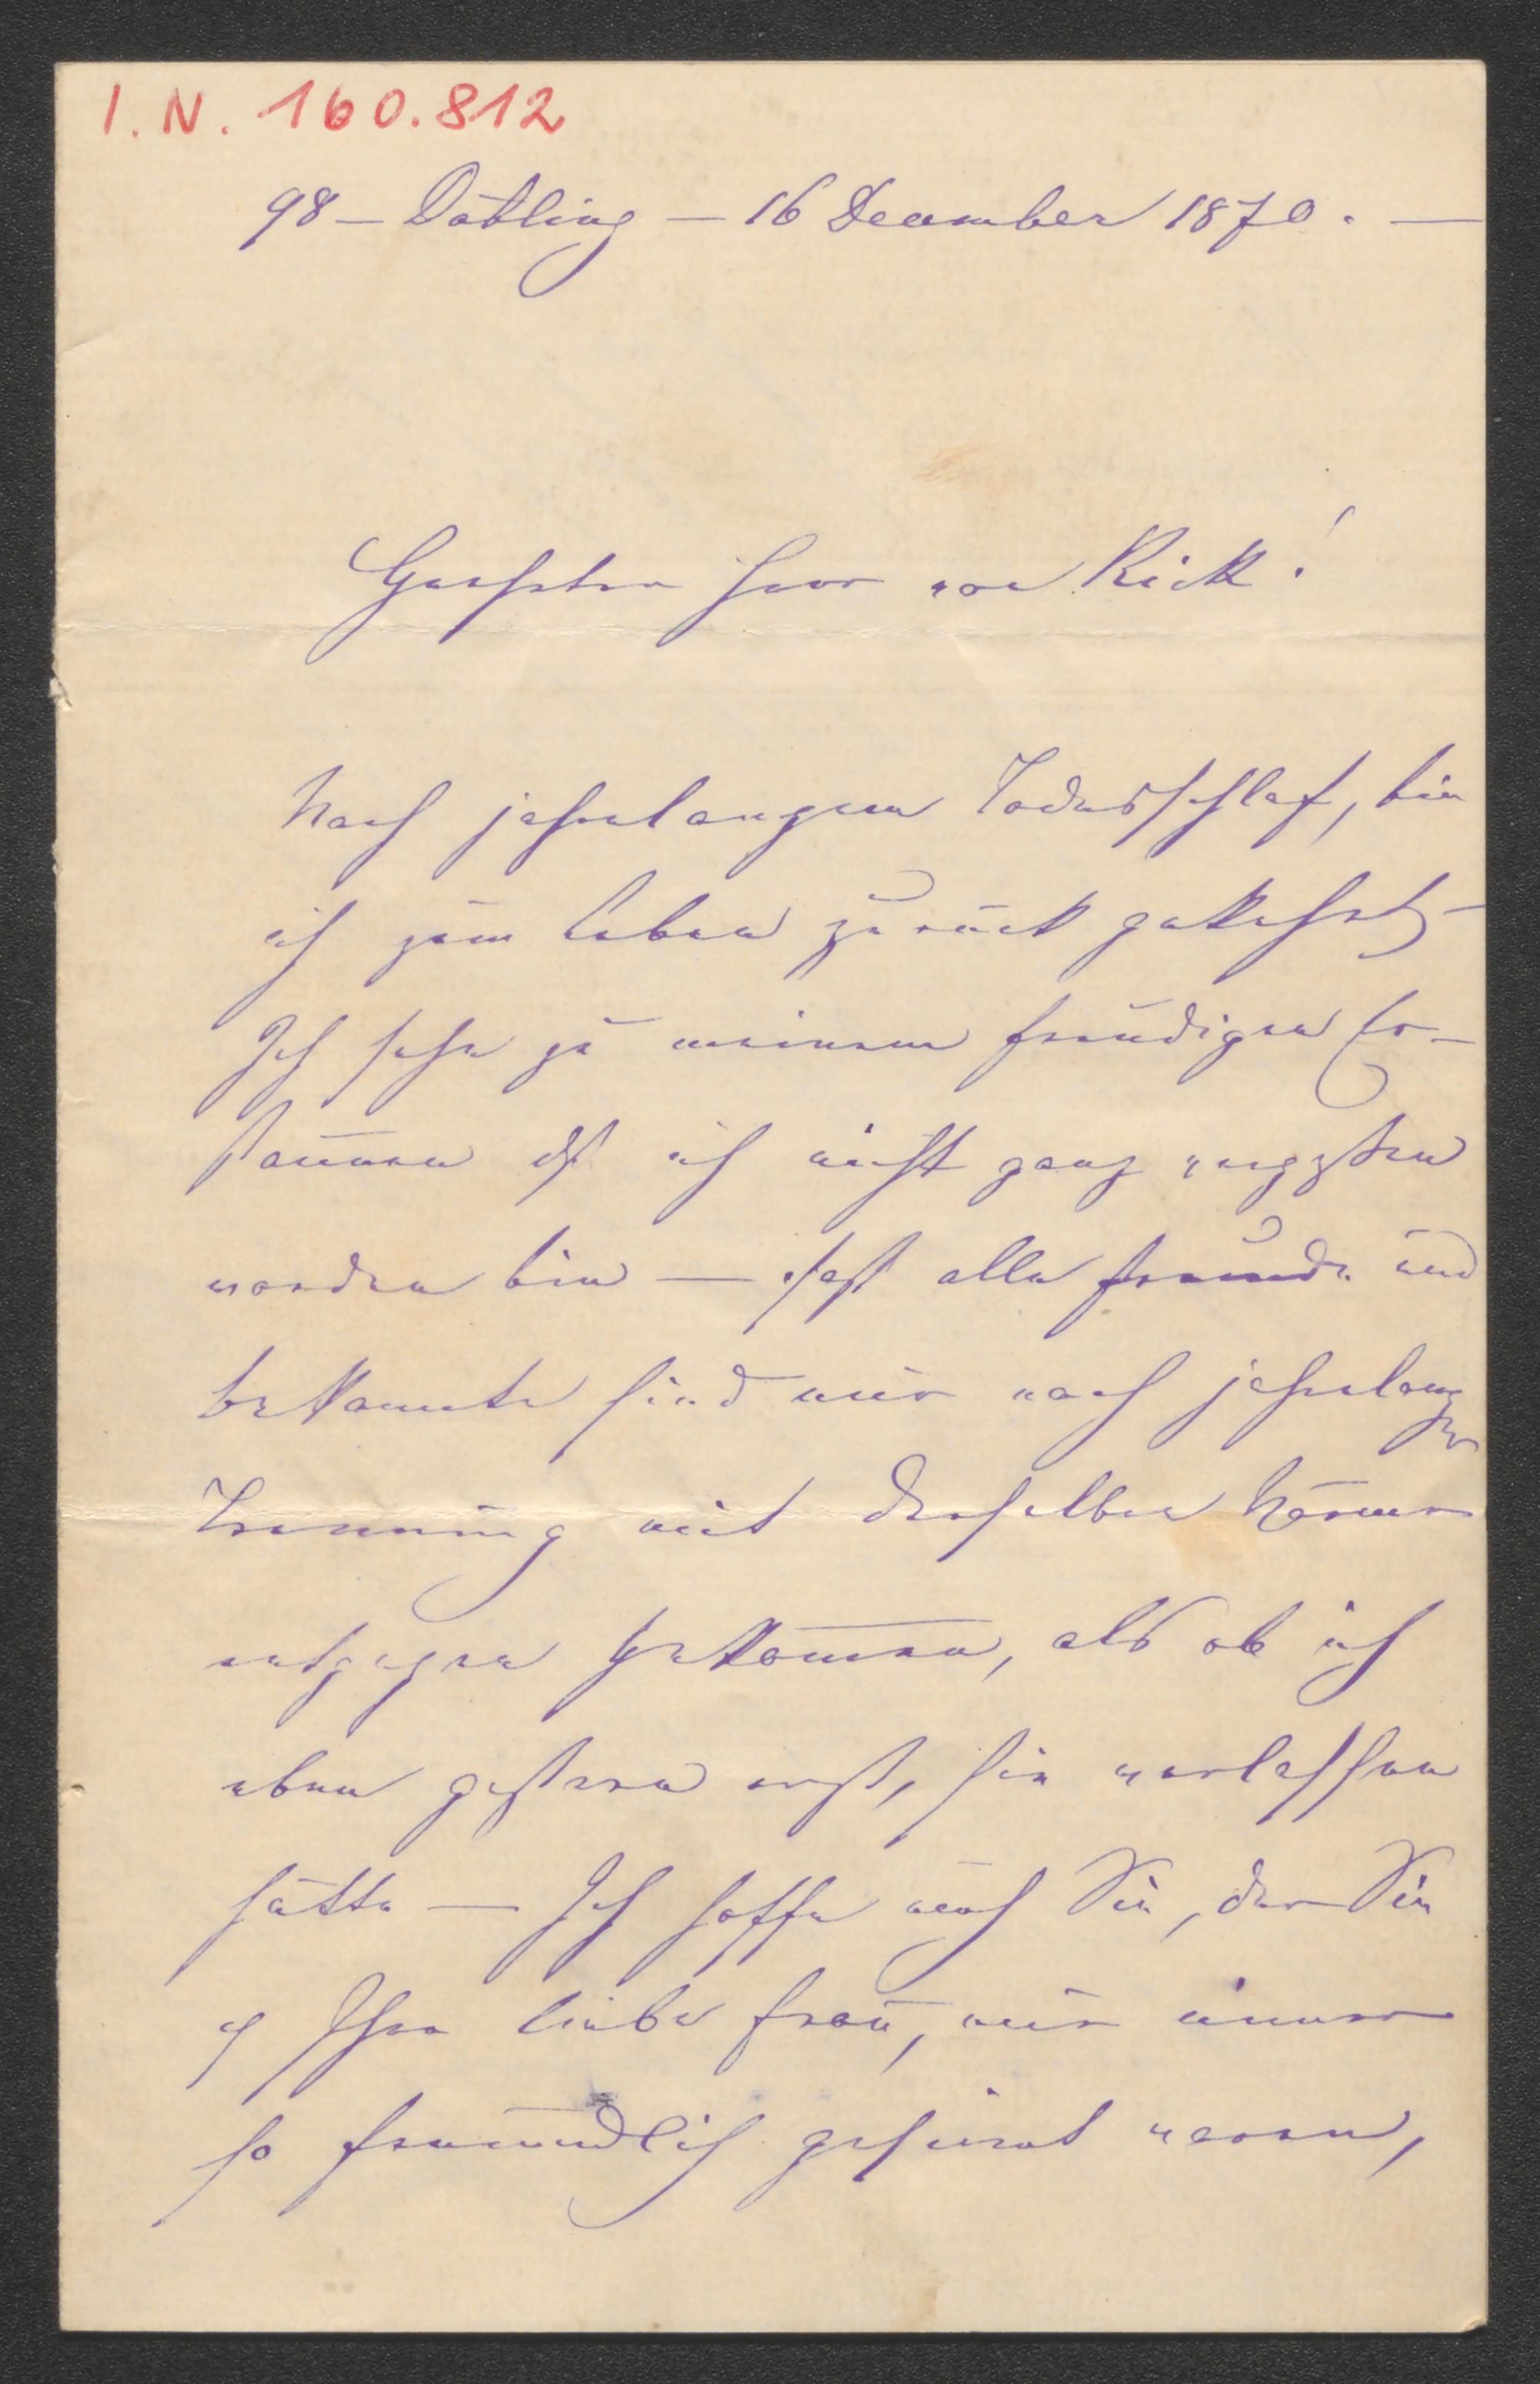 I.N. 160.812
98 – Döbling – 16 December 1870. —
Geehrter Herr von Rick!
Nach jahrelangem Todesschlaf, bin
ich zum Leben zurück gekehrt –
Ich sehe zu meinem freudigen Er-
staunen dß ich nicht ganz vergessen
worden bin — fast alle Freunde und
bekannte sind mir nach jahrelanger
Trennung mit derselben Wärme
entgegen gekom̅en, als ob ich
eben gestern erst, sie verlassen
hätte — Ich hoffe auch Sie, der Sie
u Ihre liebe Frau, mir immer
so freundlich gesinnt waren,